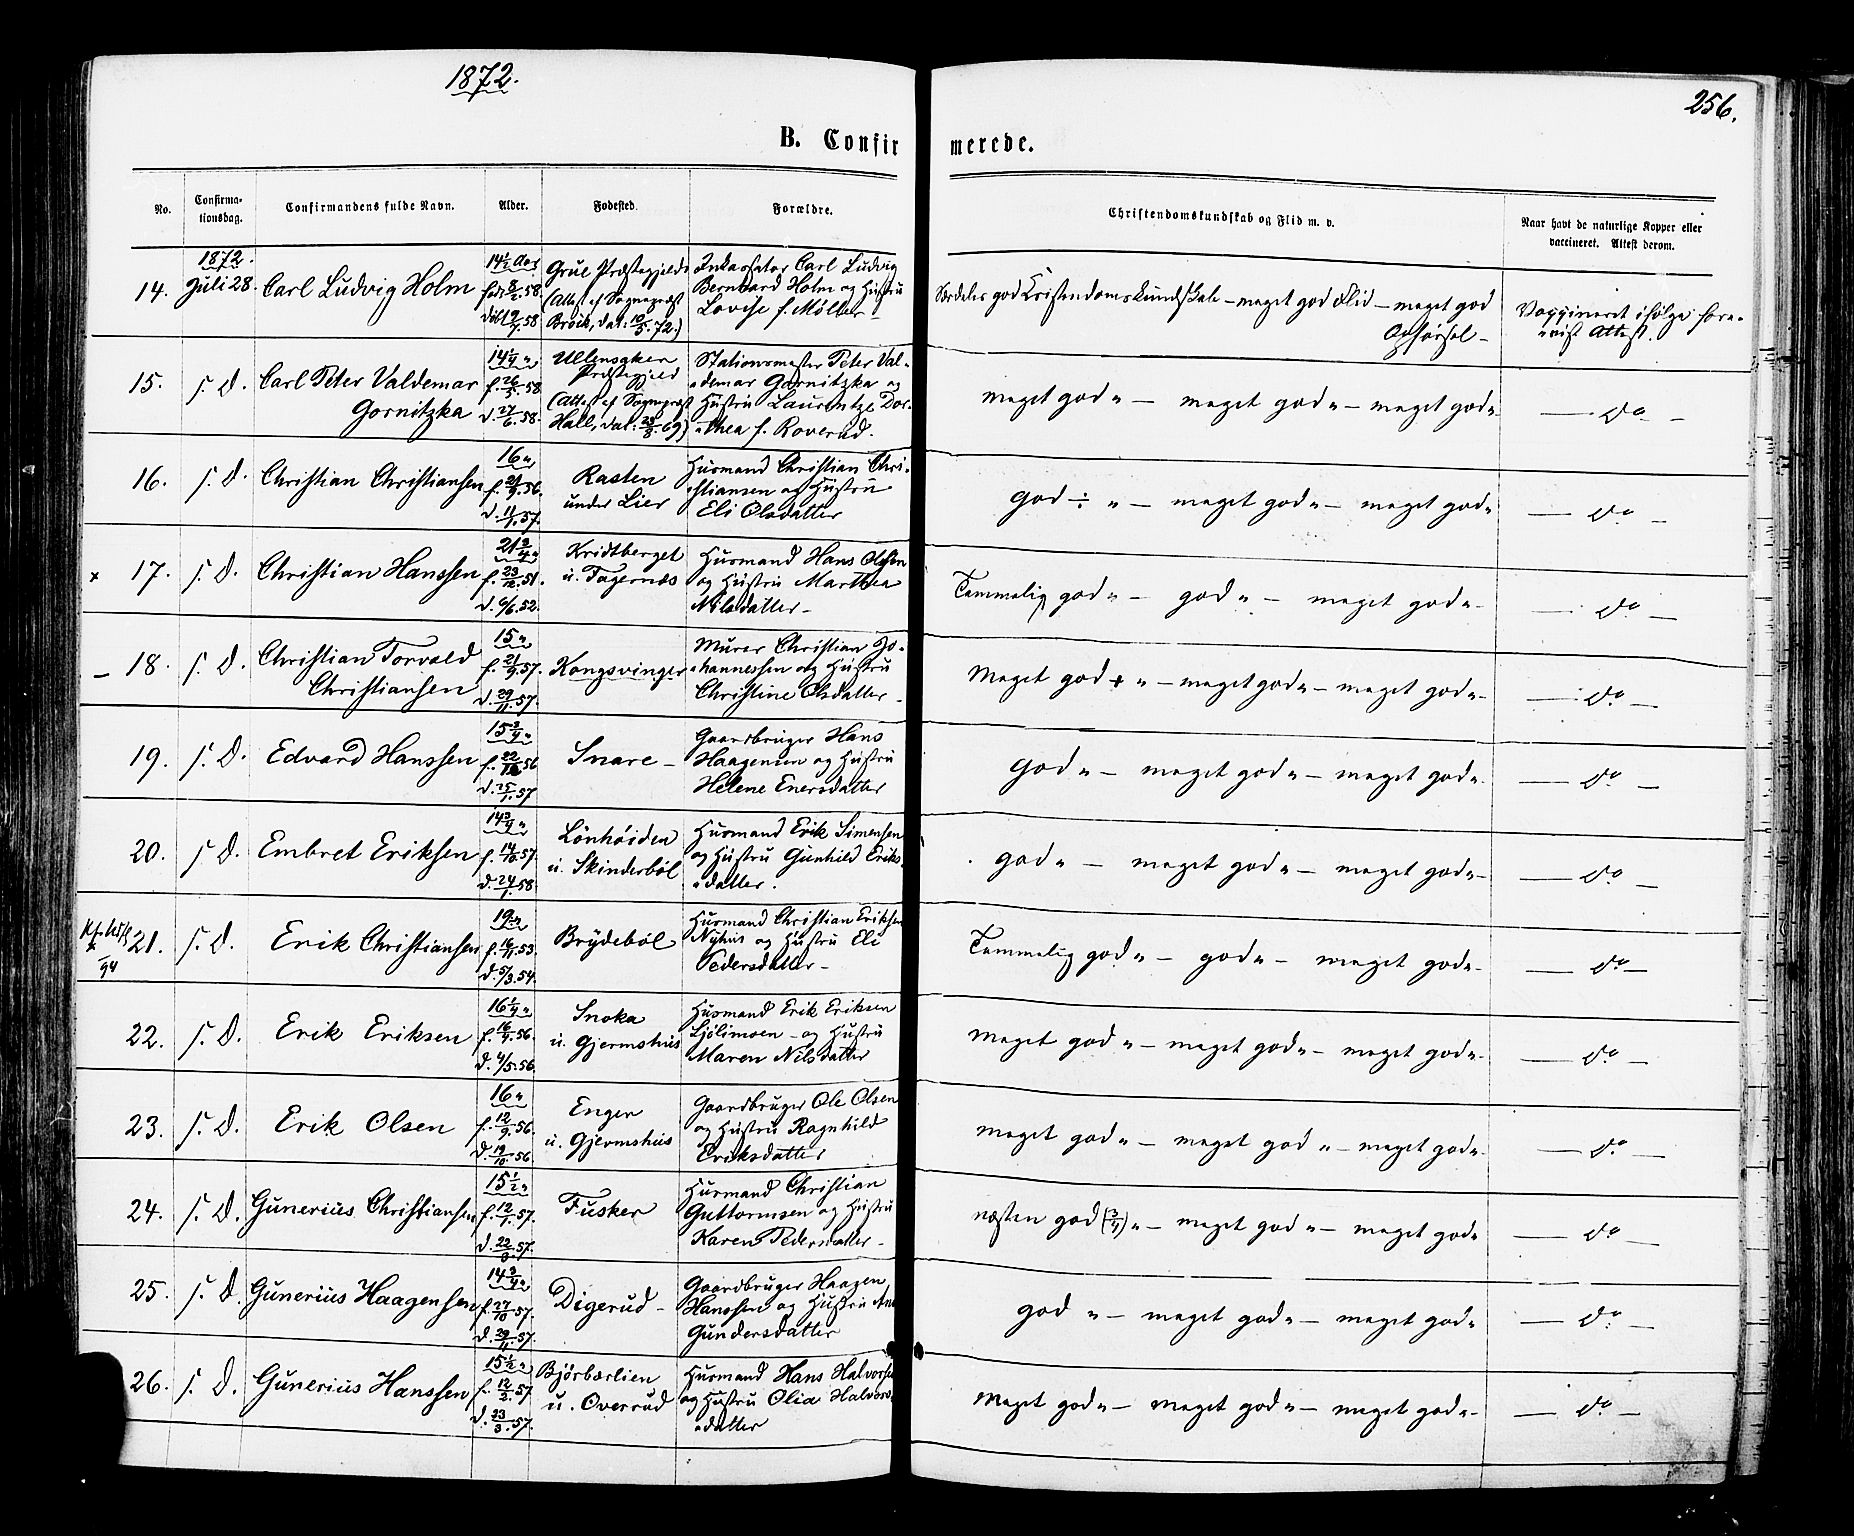 1872.
256.
B. Confirmerede.
No. Confirmationsdag. Confirmandens fulde Navn. Alder. Fødested. Forældre. Christendomskundskab og Flid m. v. Naar havt de naturlige Kopper eller vaccineret. Attest derom.
1872.
14. Juli 28. Carl Ludvig Holm
14½ Aar
Grue Præstegjeld
(Attest af Sognepræst
Inkassator Carl Ludvig
Bernhard Holm og Hustru
Lovise f. Møller
Særdeles god Kristendomskundskab – meget god Flid – meget god
Opførsel –
Vaxxineret ifølge fore-
vist Attest.
15. s. D. Carl Peter Valdemar
Gornitzka
14¼ "
f. 26/5.58
d. 27/6.58.
Ullensaker
Præstegjeld
(Attest af Sognepræst
Hall, dat:
Stationsmester Peter Val-
demar Gornitzka og
Hustru Laurentze Dor-
thea f. Roverud.
meget god " – meget god " – meget god "
— do —
16. s. D. Christian Christiansen
16 "
f. 21/9.56.
d. 11/1.57.
Rasten
under Lier
Husmand Christian Chri-
stiansen og Hustru
Eli Olsdatter
god ÷ " – meget god " – meget god "
— do —
x 17. s. D. Christian Hanssen
f. 23/12.51.
d. 6/6.52.
Kridtberget
u. Tagernæs
Husmand Hans Olssen
og Hustru Marthea
Nilsdatter –
Temmelig god " – god " – meget god "
— do —
– 18. s. D. Christian Torvald
Christiansen
15 "
f. 21/9.57.
d. 29/11.57.
Kongsvinger
Murer Christian Jo-
hannessen og Hustru
Christine Olsdatter –
Meget god + " – meget god " – meget god "
— do —
19. s. D. Edvard Hanssen
d. 25/1.57
Snare –
Gaardbruger Hans
Haagensen og Hustru
Helene Enersdatter
god " – meget god " – meget god "
— do —
20. s. D. Embret Eriksen
14¾ "
f. 14/10.57.
d. 24/1.58.
Lönhöiden
u. Skinderböl
Husmand Erik Simensen
og Hustru Gunhild Eriks-
datter.
god " – meget god " – meget god "
— do —
21. s. D. Erik Christiansen
f. 16/11.53.
d. 5/3.54.
Brydeböl
Husmand Christian Eriksen
Nyhus og Hustru Eli
Pedersdatter –
Temmelig god " – god " – meget god "
— do —
22. s. D. Erik Eriksen
16¼ "
f. 16/4.56.
d. 4/5.56.
Snoka
u. Gjermshus
Husmand Erik Eriksen
Ljölimoen – og Hustru
Maren Nilsdatter
Meget god " – meget god " – meget god "
— do —
23. s. D. Erik Olsen
16 "
f. 12/9.56.
d. 19/10.56
Enger
u. Gjermshus
Gaardbruger Ole Olsen
og Hustru Ragnhild
Eriksdatter
meget god " – meget god " – meget god "
— do —
24. s. D. Gunerius Christiansen
15½ "
f. 12/1.57.
d. 22/3.57.
Fusker
Husmand Christian
Guttormsen og Hustru
Karen Pedersdatter –
næsten god (¾) " – meget god " – meget god "
— do —
25. s. D. Gunerius Haagensen
14¾ "
f. 27/10.57.
d. 29/11.57.
Digerud –
Gaardbruger Haagen
Hanssen og Hustru
Gundersdatter
god " – meget god " – meget god "
— do —
26. s. D. Gunerius Hanssen
15½ "
f. 12/2.57
d. 23/3.57.
Bjørbærlien
u. Overrud
Husmand Hans Halvorsen
og Hustru Olia Halvors-
datter
Meget god " – meget god " – meget god "
— do —